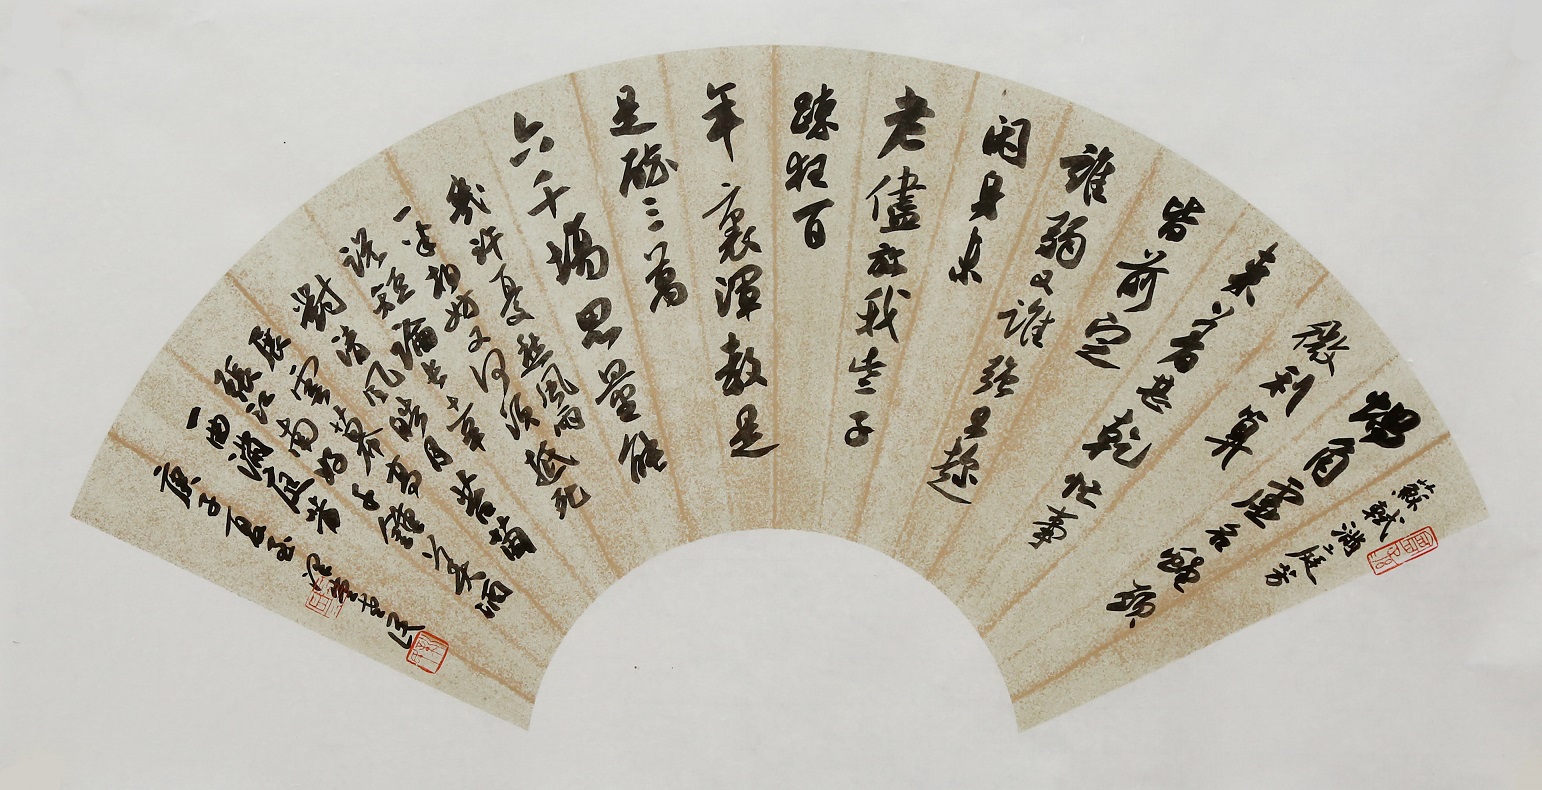 蘇軾滿庭芳
蝸角虛名蠅頭
微利算
來著甚乾忙事
皆前定
誰弱又誰強且趁
閑身未
老儘放我些子
疎狂百
年裏渾教是
是醉三萬
六千場思量能
幾許憂愁風雨
一半相妨又何須抵死
說短論長幸
對清風皓月苔茵
展雲幕高
張江南好千鍾美酒
一曲滿庭芳
庚子夏